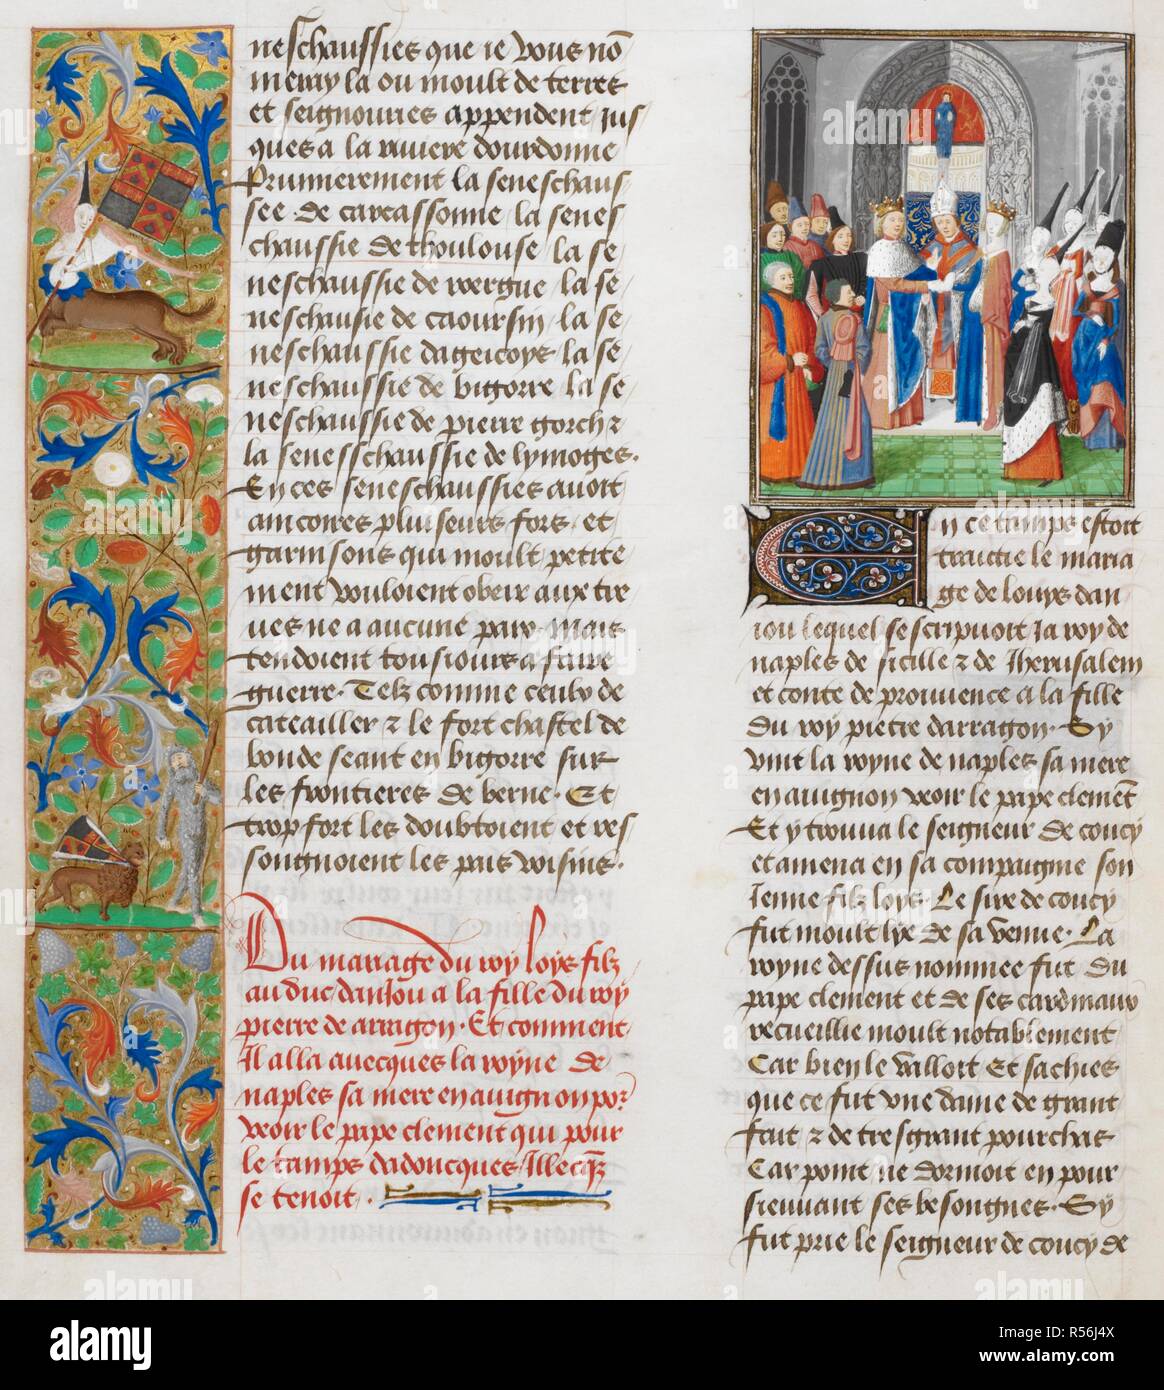 neschaussies que ie vous nō
meray la ou moult de terres
et seignouries appendent Jus
ques a la riuiere dourdonne
Primierement la seneschaus
see de carcassonne la senes
chaussie de thoulouse la se
neschaussie de wergue la se
neschausie de caoursin la se
neschaussie dageicoys la se
neschaussie de bigorre la se
neschaussie de pierre gorch &
la senesschaussie de lymoges.
En ces seneschaussies auoit
aincoires pluiseurs fors et
garnisons qui moult petite
ment vouloient obeir aux tre
ues ne a aucune paix. Mais
tendoient tousiours a faire
guerre. Telz comme ceulx de
cateailler & le fort chastel de
bourde seant en bigorre sur
les frontieres de berne. Et
trop fort les doubtoient et res
songnoient les pais voisins.
Du mariage du roy loys filz
au duc danJou a la fille du roy
pierre de arragon. Et comment
Il alla auecques la royne de
naples sa mere en auignon por
veoir le pape clement qui pour
le tamps dadoncques Illecq̄z
se tenoit.
En ce tamps estoit
traictie le maria
ge de louys dan
iou lequel se scripuoit Ja roy de
naples de sicille & de Jherusalem
et conte de prouuence a la fille
du roy pietre darragon. Sy
vint la royne de naples sa mere
en auignon veoir le pape clemēt
Et y trouua le seigneur de coucy
et amena en sa compaignie son
Jenne filz loys. Le sire de coucy
fut moult lye de sa venue. La
royne dessus nommee fut du
pape clement et de ses cardinaux
recueillie moult notablement
Car bien le valloit Et sachies
que ce fut vne dame de grant
fait & de tresgrant pourchas
Car point ne dormoit en pour
sieuuant ses besongnes. Sy
fut prie le seigneur de coucy de
alamy
Image ID: R56J4X
www.alamy.com